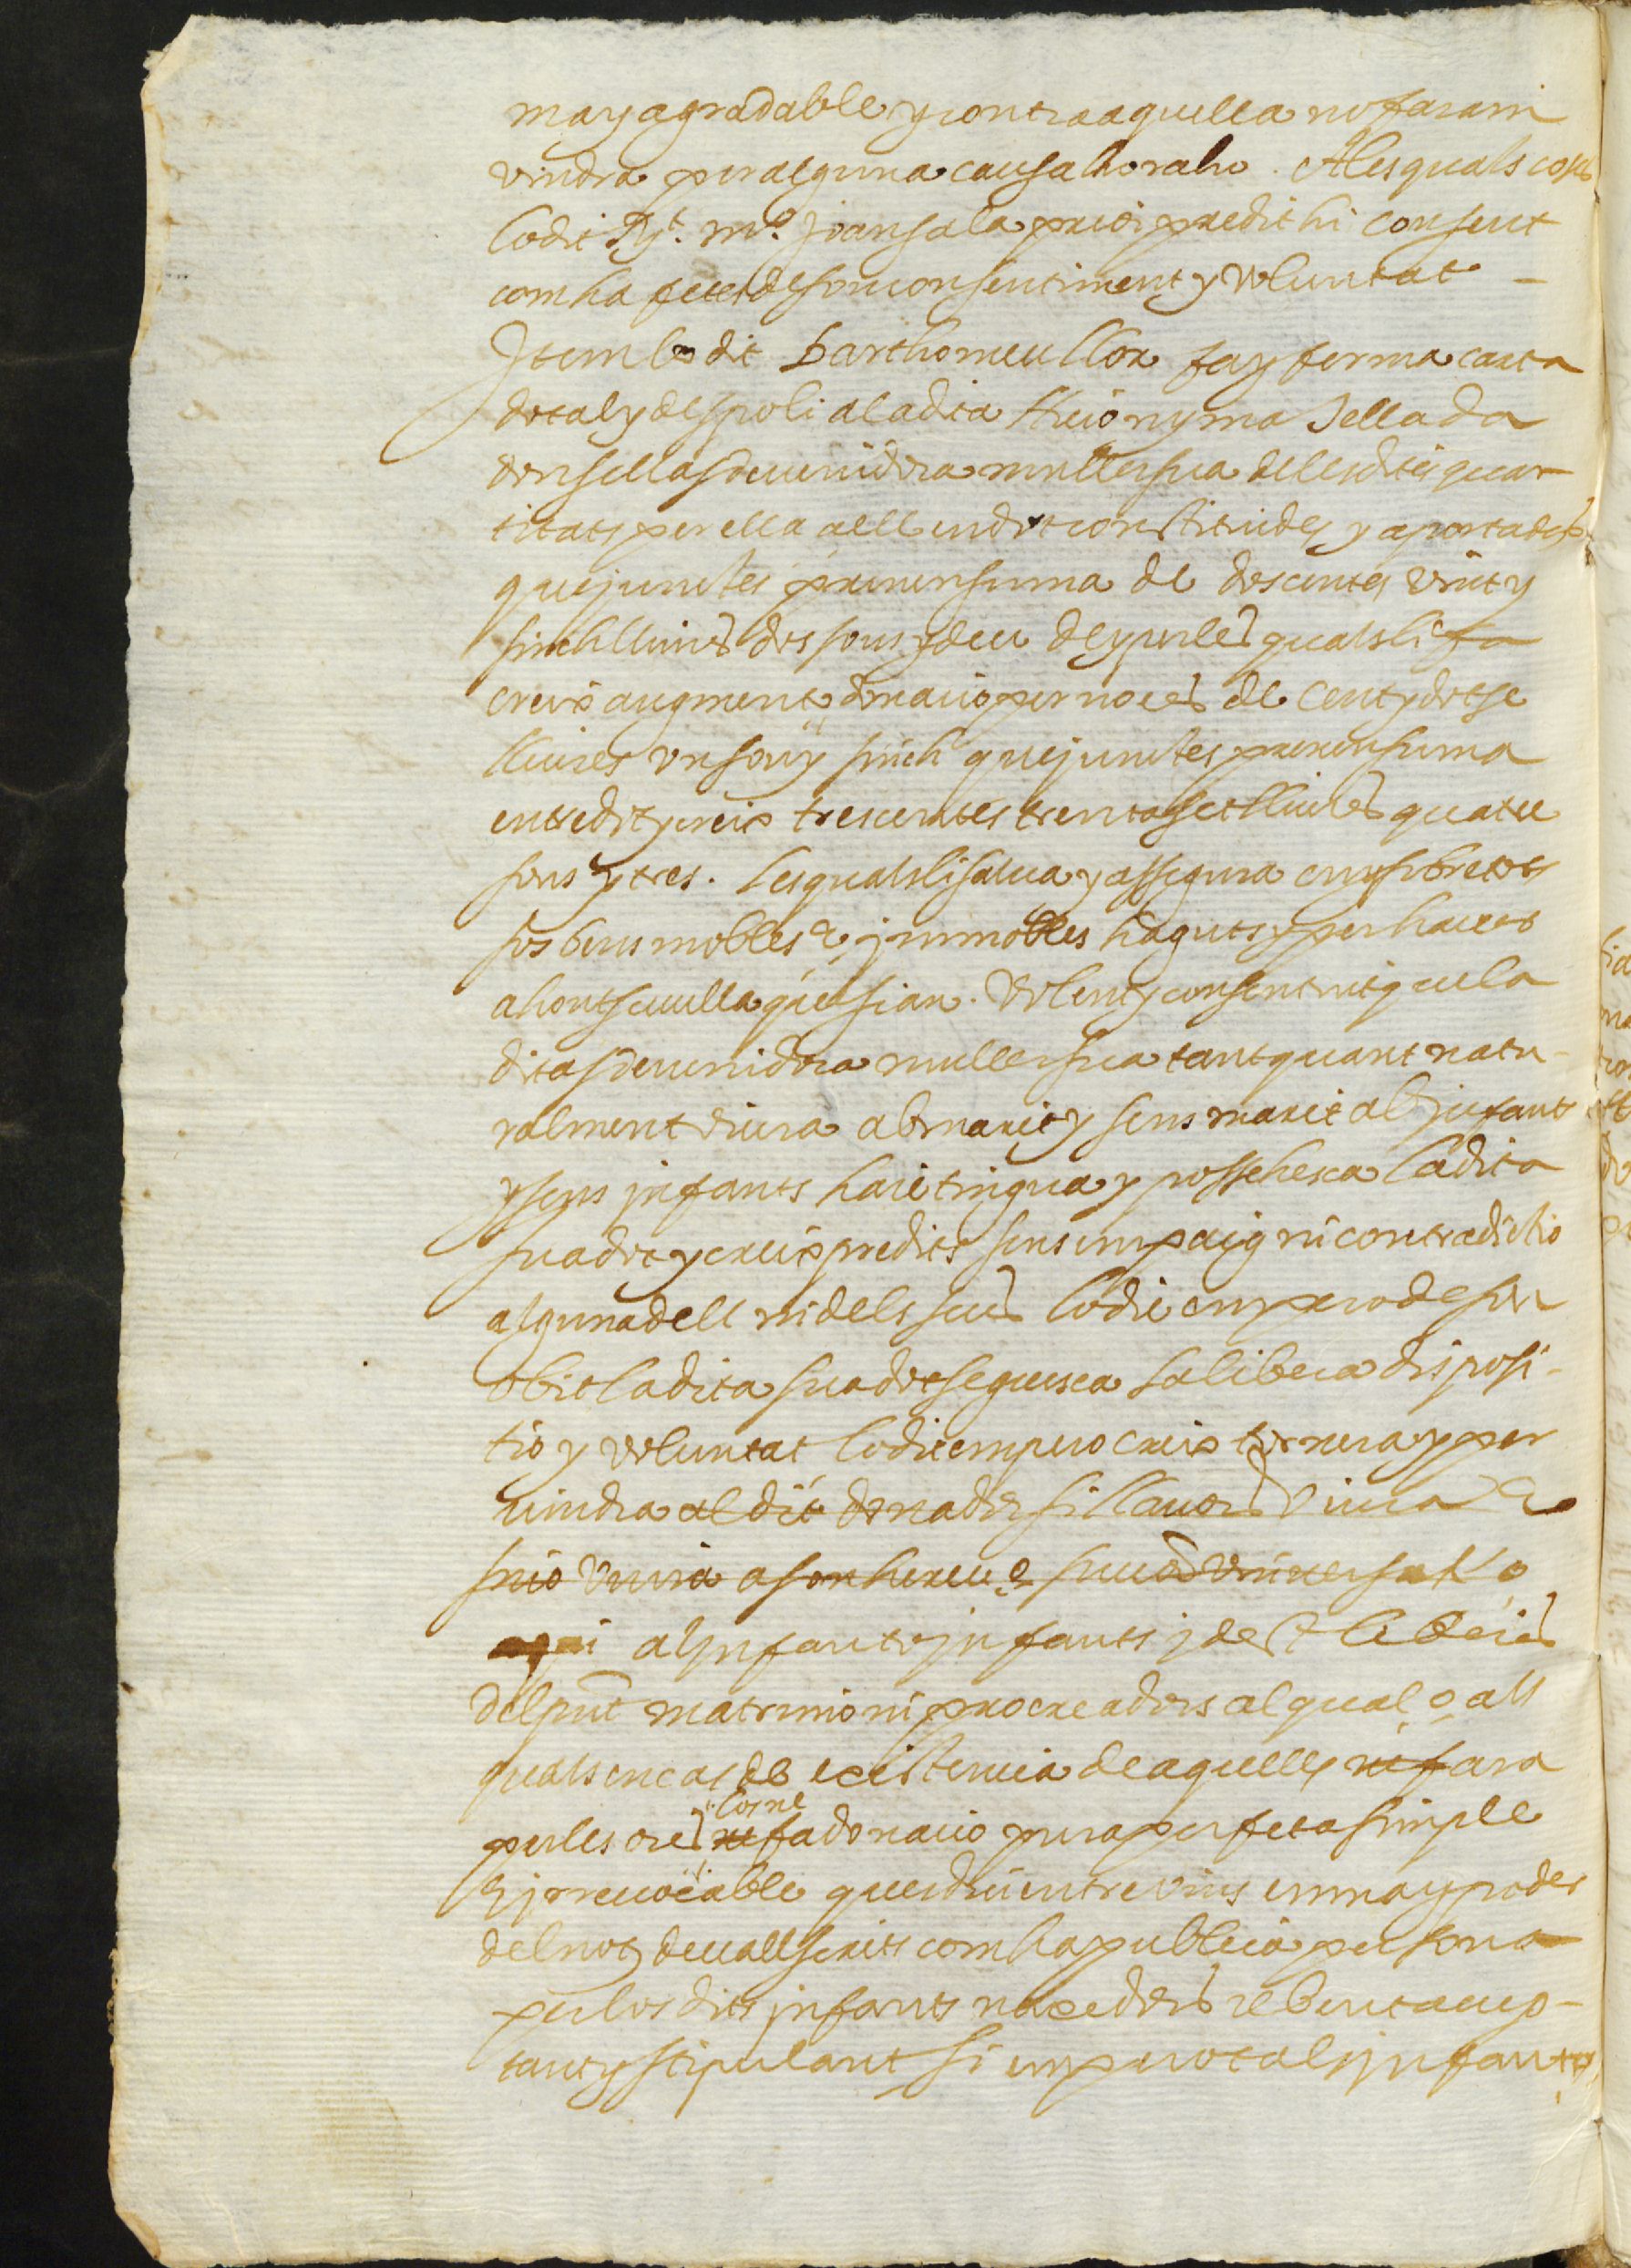 may agradable y contra aquella no fara ni
vindra per alguna causa ho raho. A les quals coses
lo dit Rt. mo. Joan sala preveri predit hi consent
com ha fetes de son consentiment y voluntat
Item lo dit Barthomeu llor fa y ferma carta
dotal y de spoli a la dita Hieronyma Sellada
donsella sdevenidora muller sua de les dites quan-
titats per ella a ell en dot constituides y aportades
que juntes prenen suma de doscentes vint y
sinch lliures dos sous y deu de y per les quals li fa
creix augment donacio per noces de Cent y dotse
lliures un sou y sinch que juntes prenen suma
entre dot y creix trescentes trenta set lliures quatre
sous y tres. Les quals li salva y assegura en y sobre tots
sos bens mobles e jmmobles haguts y per haver
ahont se vulla que sian. Volent y consentint que la
dita sdevenidora muller sua tant quant natu-
ralment viura ab marit y sens marit ab jnfants
y sens jnfants haie tingua y possehesca la dita
sua dot y creix predits sens empaig ni contradictio
alguna dell ni dels seus lo die empero de son
obit la dita sua dot seguesca sa libera disposi-
tio y voluntat lo dit empero creix tornera y per
vindra al dit donador si llavors viura e
sino viura a son hereu e succ universal o
al jnfant o jnfants
del pnt matrimoni procreadors al qual o als
quals en cas de existencia de aquells ne fara
per les ores ne fa donacio pura perfeta simple
e jrrevocable ques diu entre vius en ma y poder
del not devall scrit com ha publica persona
per los dits jnfants naxedors rebent accep-
tant y stipulant si empero tal jnfant